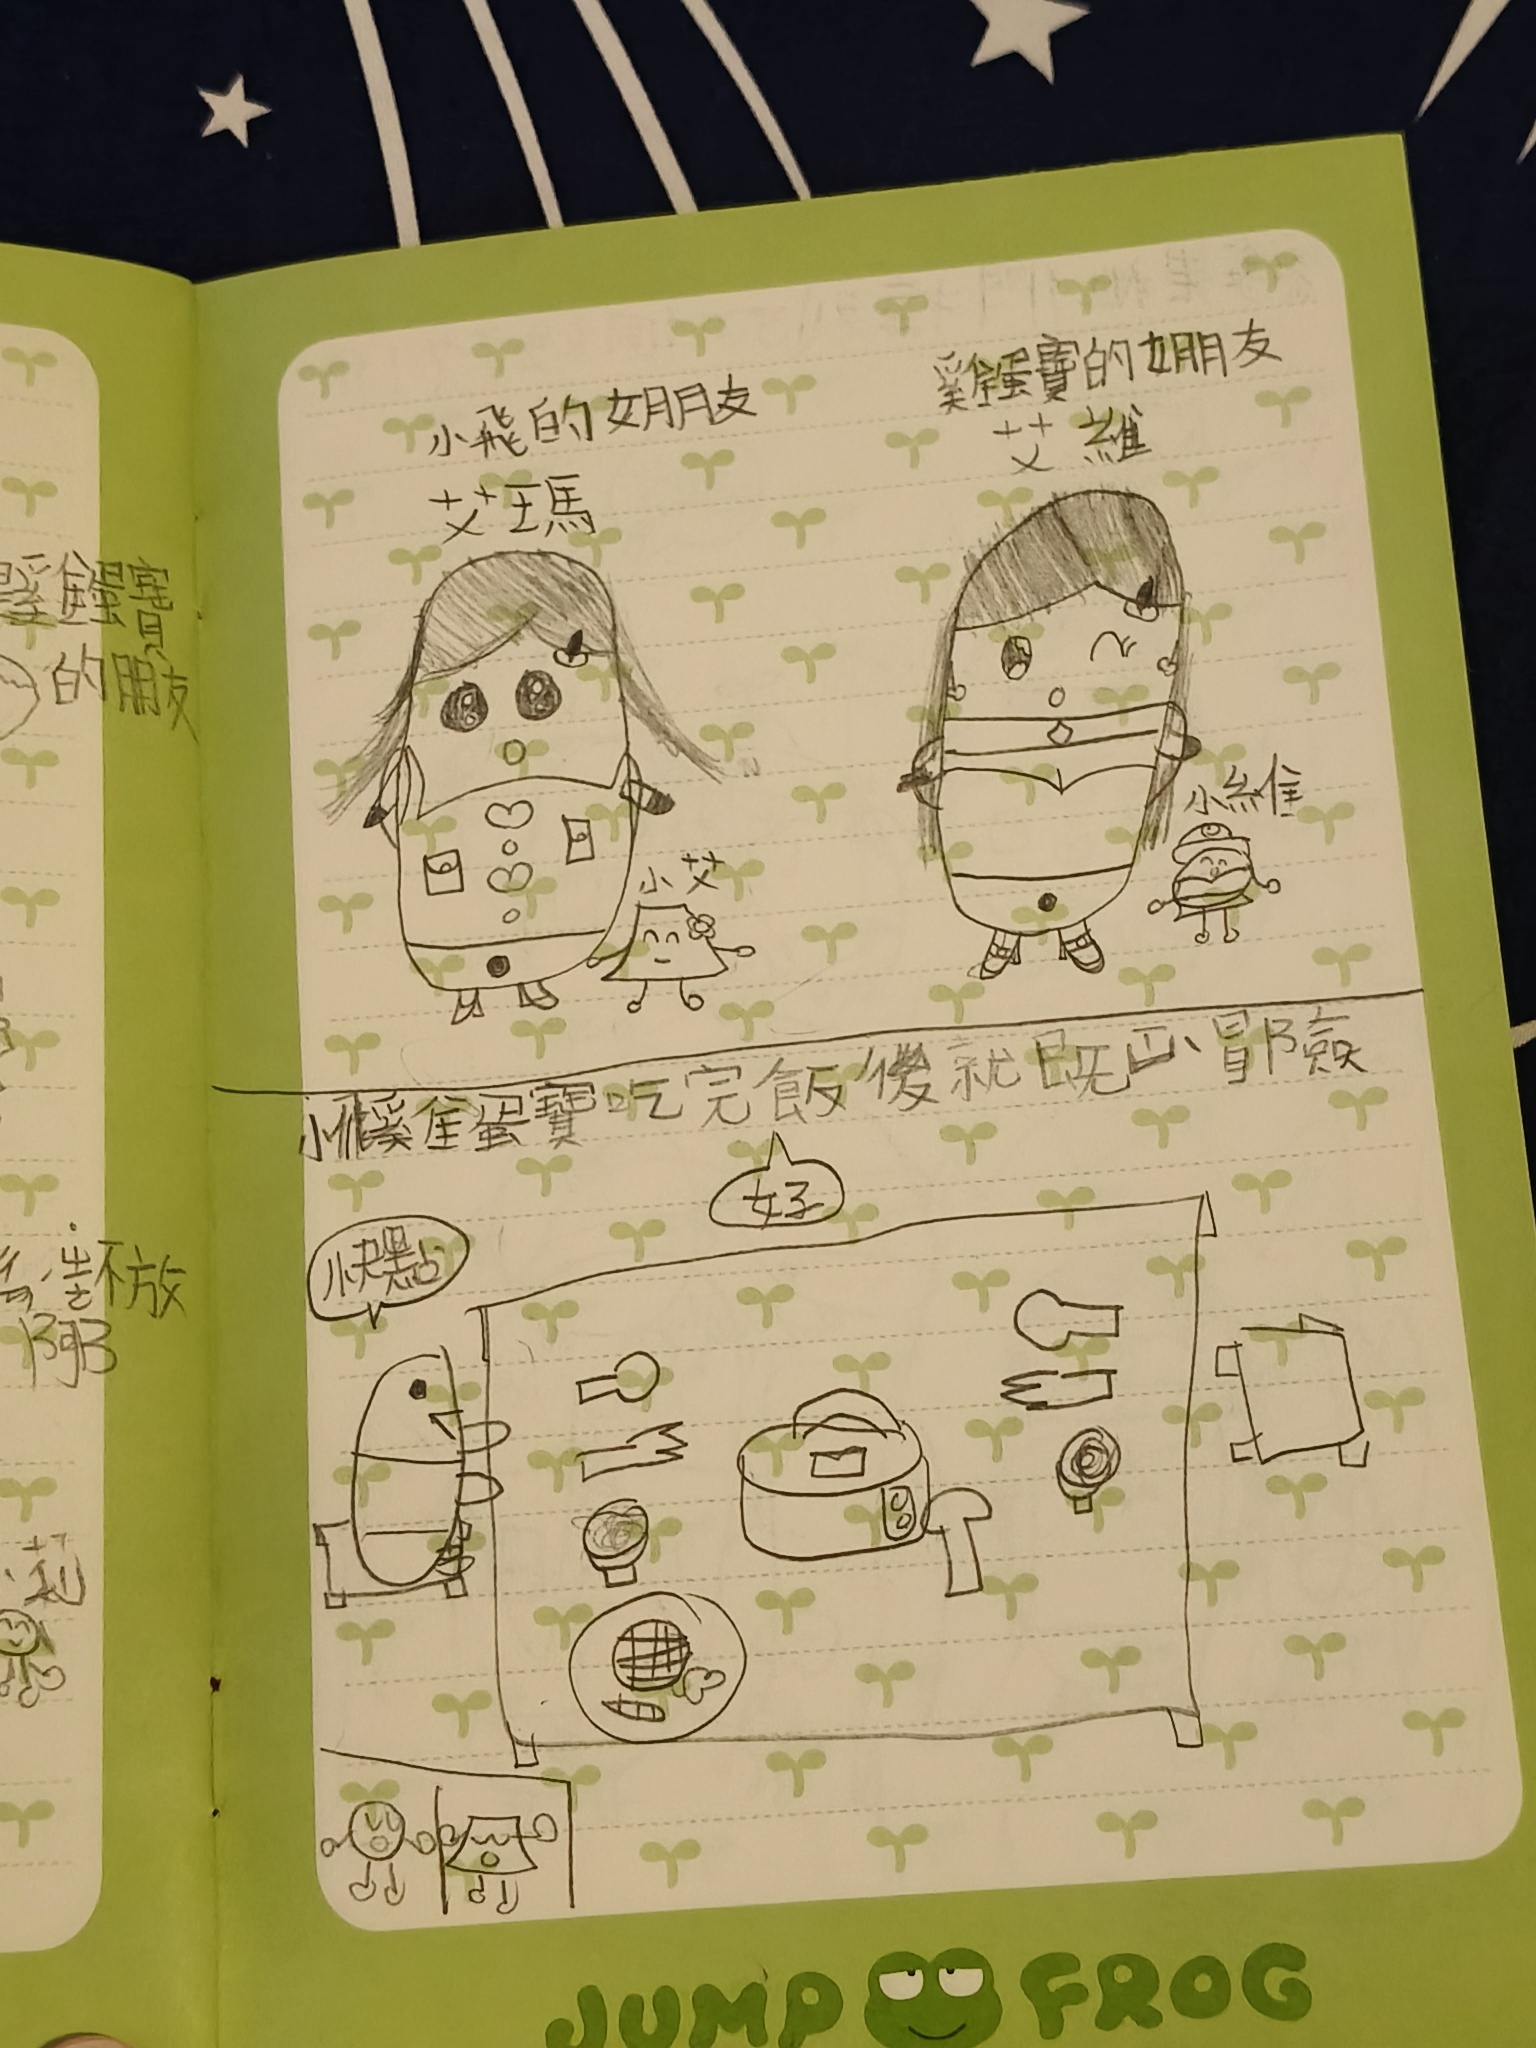 雞蛋寶
的朋友
不放
小飛的女朋友
艾瑪
雞蛋寶的女朋友
艾維
小艾
小維
雞蛋寶吃完飯後就既冒險
好
快點
JUMP FROG